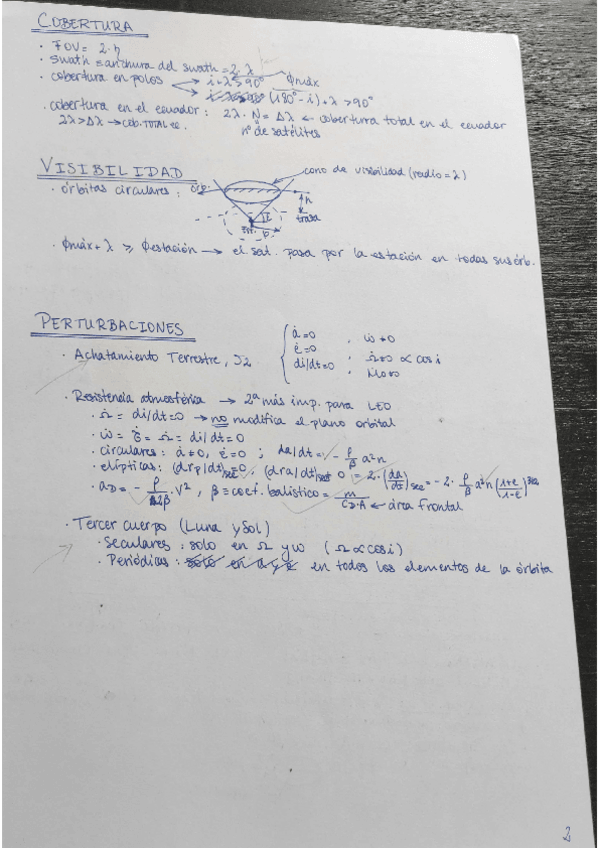 COBERTURA
· FOV = 2·η
· swath = anchura del swath = 2·λ
· cobertura en polos → i+λ ≥ 90° φmáx
→ (180°-i)+λ > 90°
· cobertura en el ecuador: 2λ·N = Δλ ← cobertura total en el ecuador
2λ>Δλ → cob. TOTAL ec. nº de satélites
VISIBILIDAD
cono de visibilidad (radio = λ)
· órbitas circulares: órb.
h
traza
E
est.
· φmáx + λ ≥ φestación → el sat. pasa por la estación en todas sus órb.
PERTURBACIONES
· Achatamiento Terrestre, J2
ȧ=0 , ẇ≠0
ė=0
di/dt=0 ; ∝ cos i
· Resistencia atmosférica → 2ª más imp. para LEO
· Ω̇ = di/dt=0 → no modifica el plano orbital
· ẇ = = Ω̇ = di/dt=0
· circulares: ȧ≠0, ė=0 ; da/dt = - ρ/β a²n
· elípticas: (drp/dt)sec=0, (dra/dt)sec = 2·(da/dt)sec = -2· ρ/β a²n (1+e/1-e)^3/2
· aD = - ρ/2β · V², β = coef. balístico = m/CD·A ← área frontal
· Tercer cuerpo (Luna y Sol)
· Seculares: solo en Ω y ω (Ω ∝ cos i)
· Periódicas: solo en a y e en todos los elementos de la órbita
2